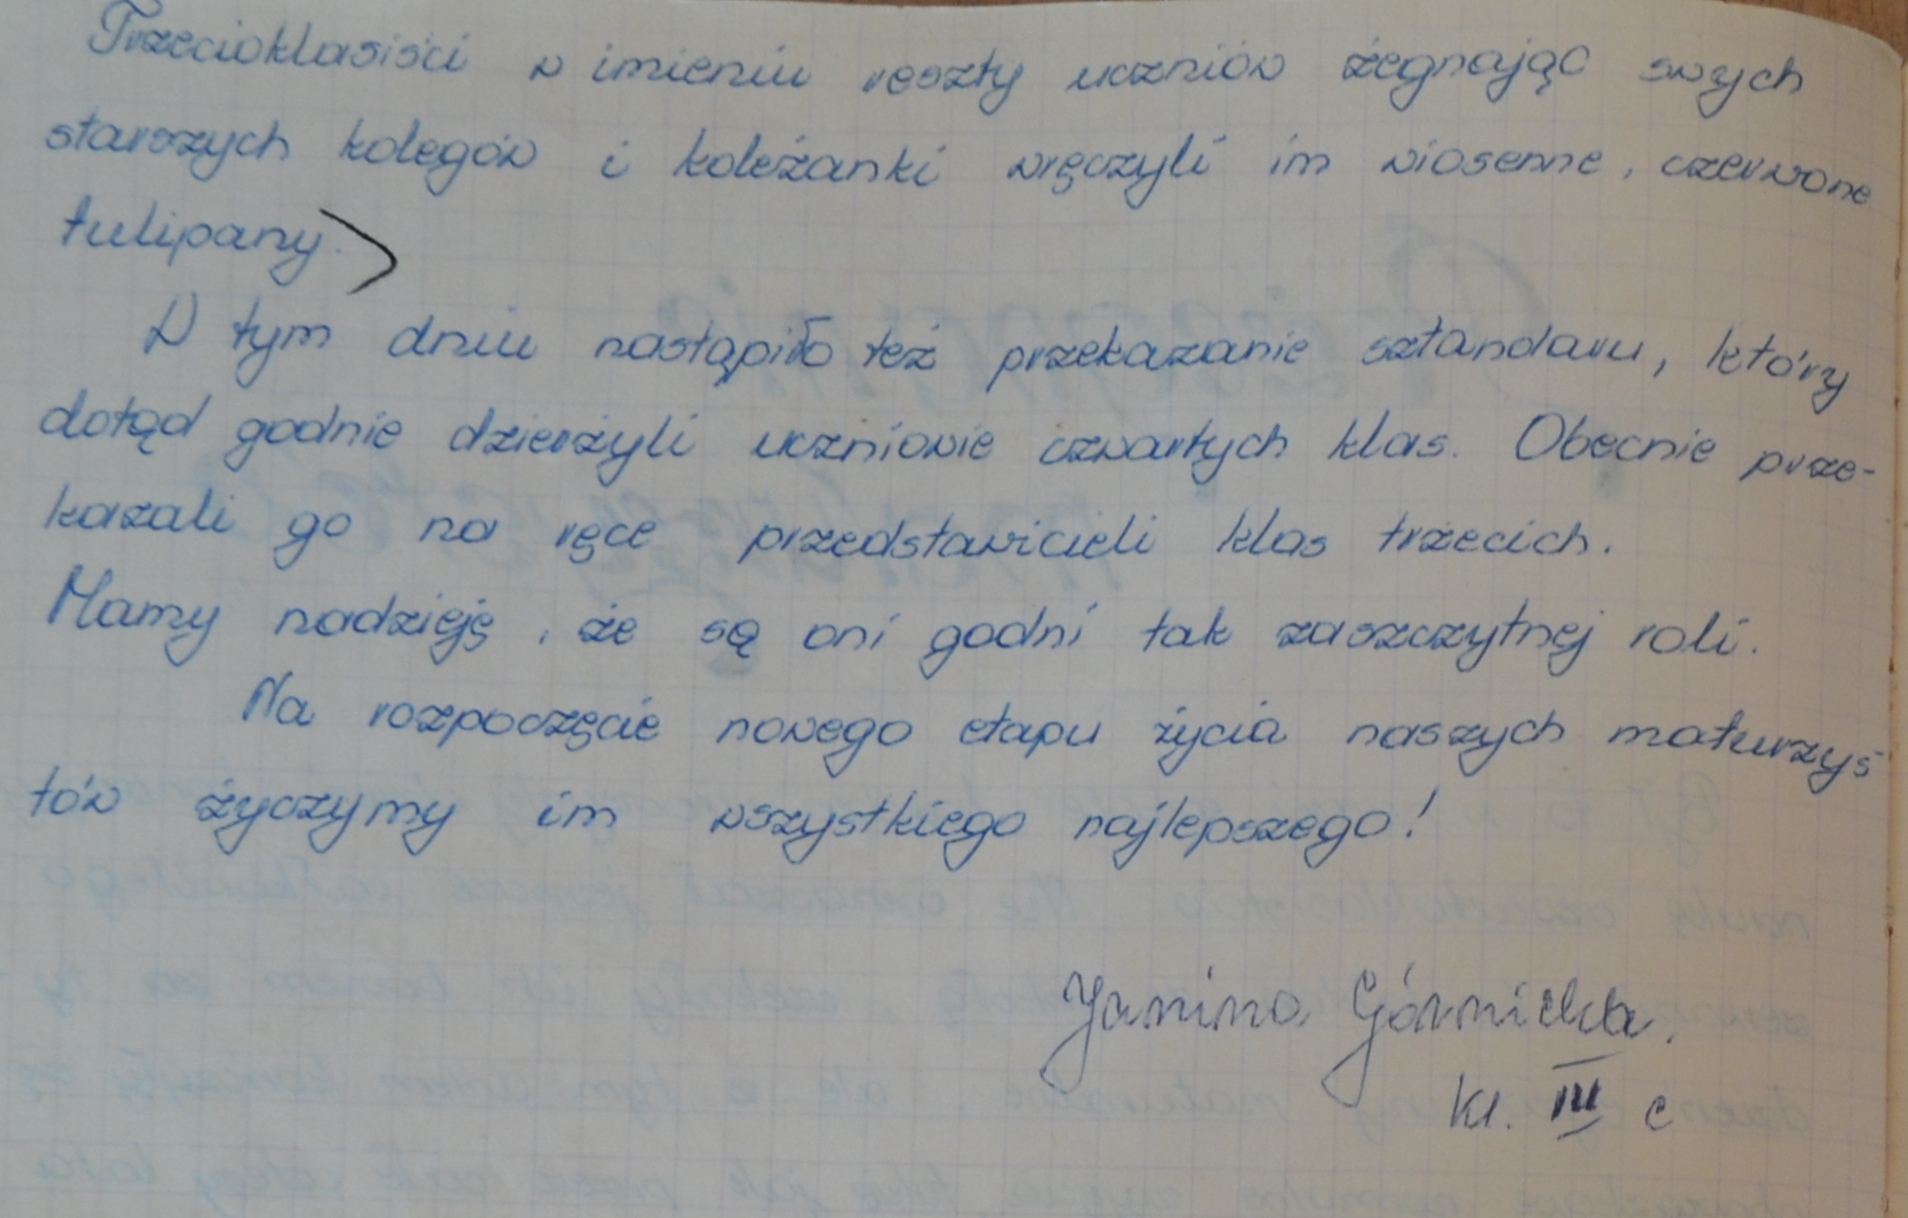 Trzecioklasiści w imieniu reszty uczniów żegnając swych
starszych kolegów i koleżanki wręczyli im wiosenne, czerwone
tulipany.
W tym dniu nastąpiło też przekazanie sztandaru, który
dotąd godnie dzierżyli uczniowie czwartych klas. Obecnie prze-
kazali go na ręce przedstawicieli klas trzecich.
Mamy nadzieję, że są oni godni tak zaszczytnej roli.
Na rozpoczęcie nowego etapu życia naszych maturzys-
tów życzymy im wszystkiego najlepszego!
Janina Górnicka.
kl. III c